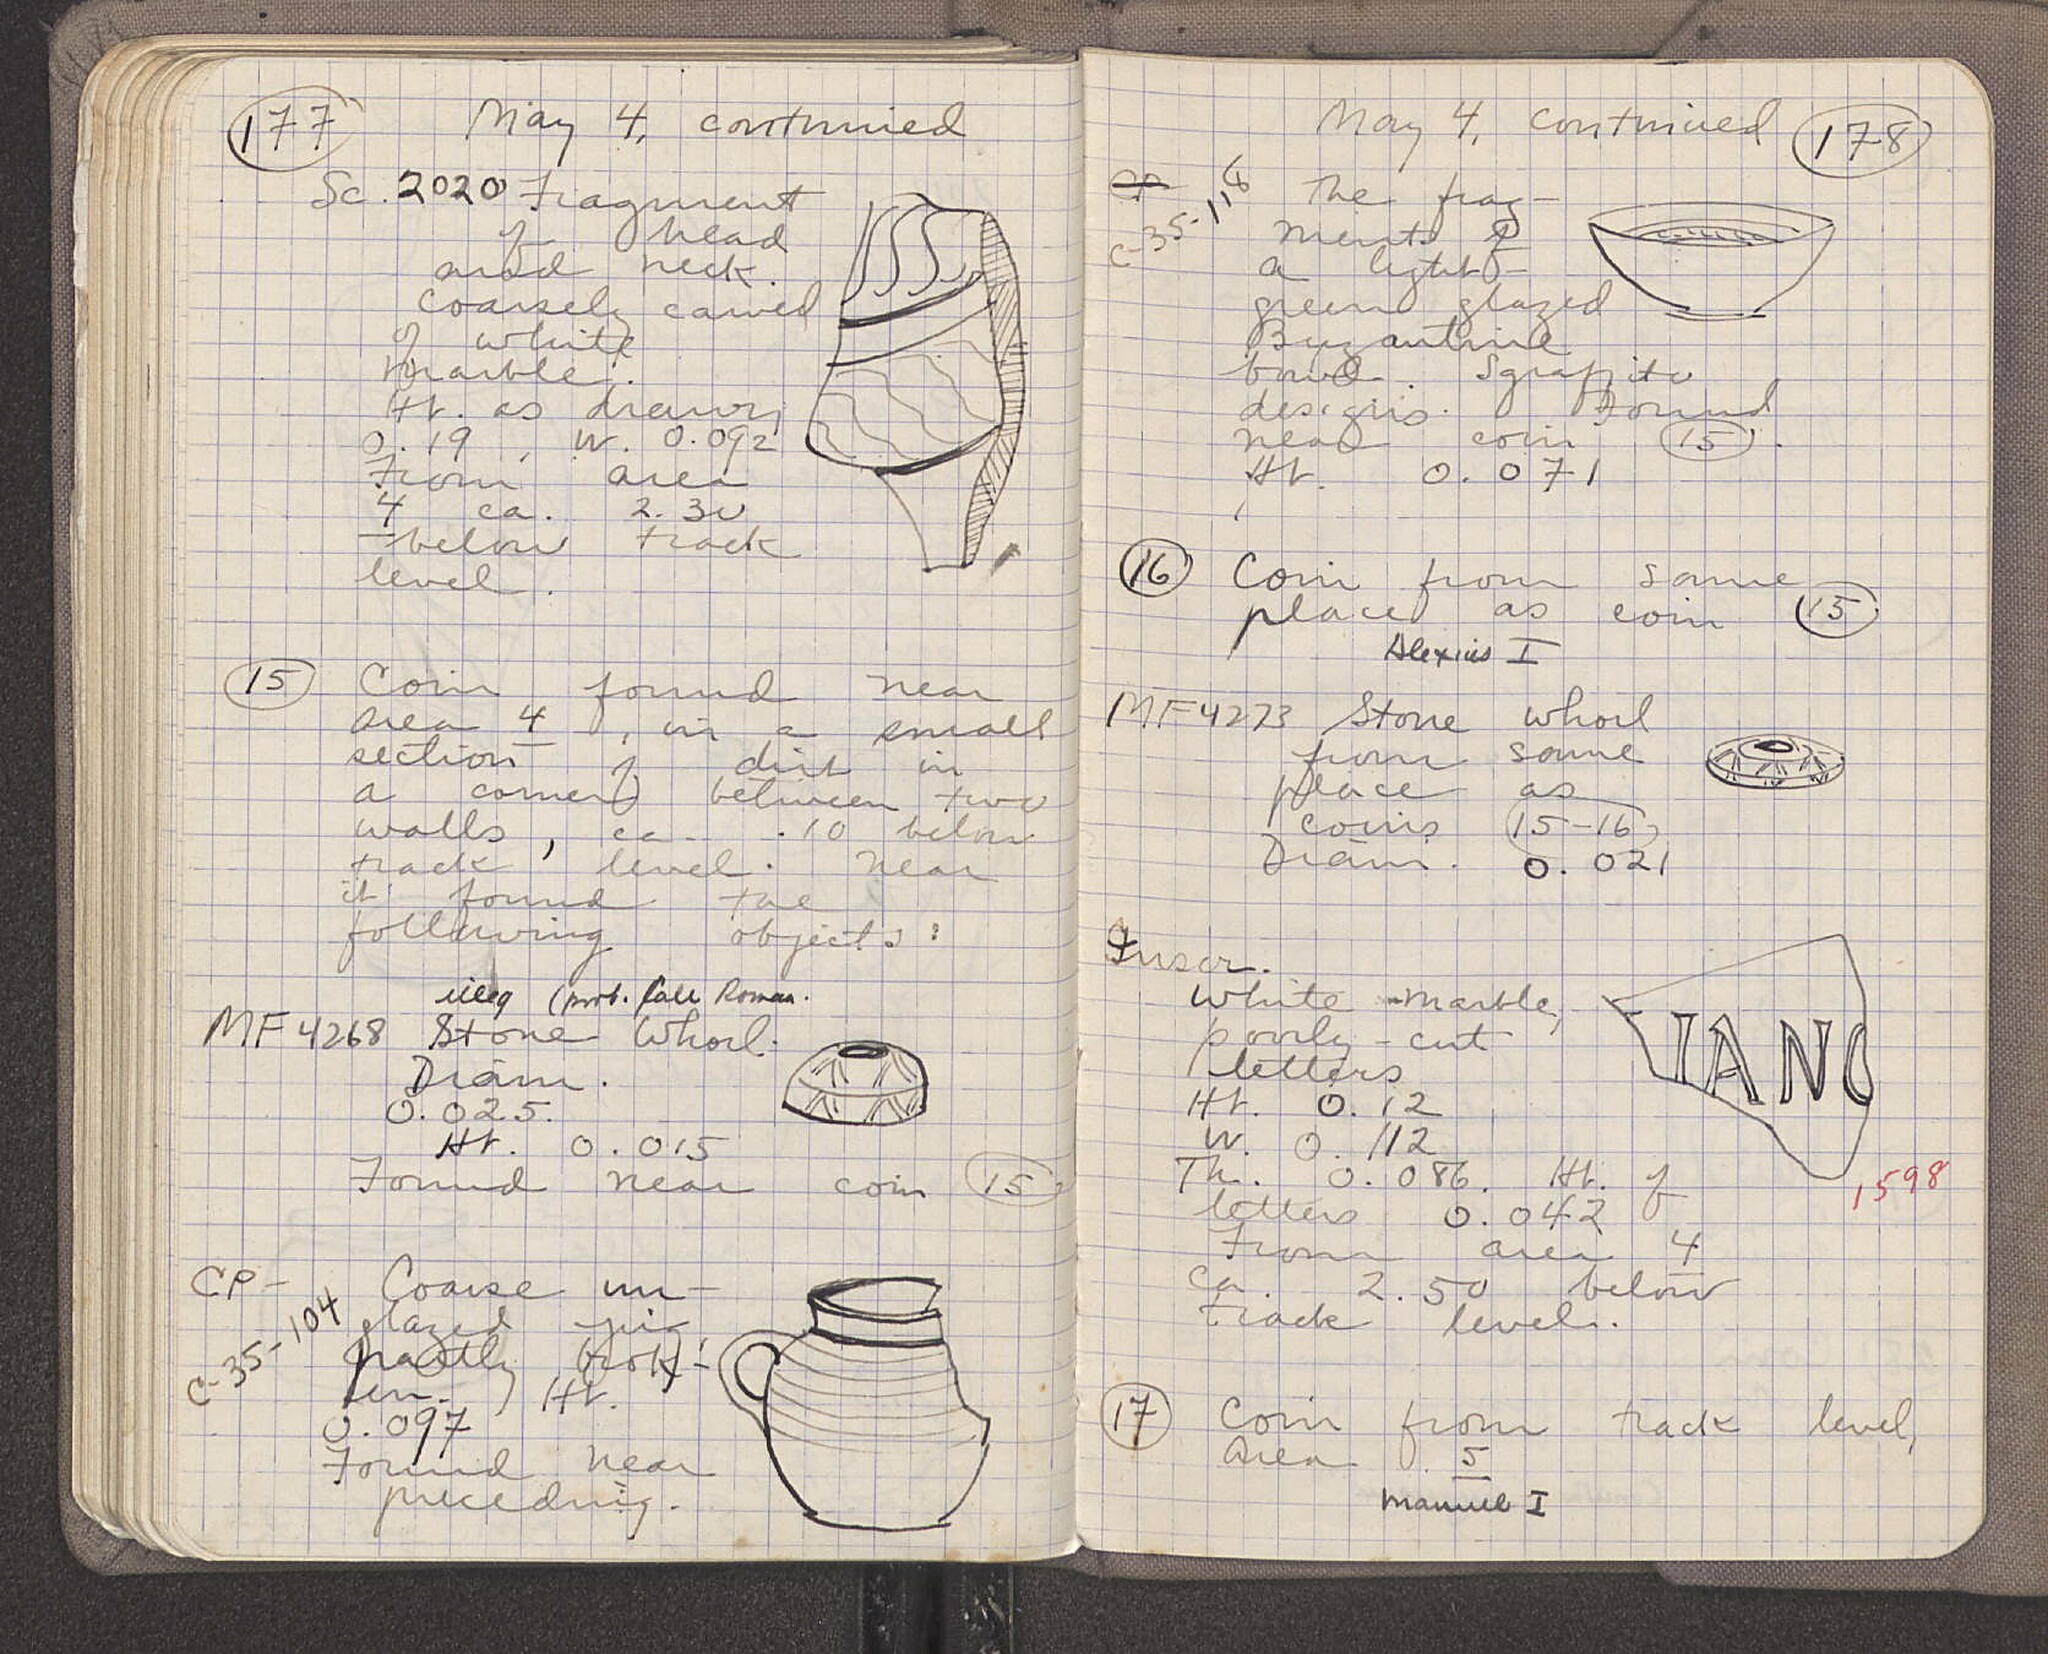 177
May 4, continued
Sc. 2020 Fragment
of head
and neck.
Coarsely carved
of white
marble.
Ht. as drawn,
0.19, W. 0.092
From area
4 ca. 2.30
below track
level.
15 Coin found near
area 4, in a small
section of dirt in
a corner between two
walls, ca. .10 below
track level. Near
it found the
following objects:
illeg (prob. late Roman.
MF 4268 Stone Whorl.
Diam.
0.025.
Ht. 0.015
Found near coin 15
CP-
C-35-104
Coarse un-
glazed jug,
partly brok-
en. Ht.
0.097
Found near
preceding.
May 4, continued 178
CP
C-35-
The frag-
ments of
a light-
green glazed
Byzantine
bowl. Sgraffito
designs. Found
near coin 15.
Ht. 0.071
16 Coin from same
place as coin 15
Alexius I
MF4273 Stone whorl
from same
place as
coins 15-16
Diam. 0.021
Inscr.
White marble,
poorly-cut
letters
IANO
Ht. 0.12
W. 0.112
Th. 0.086. Ht. of
letters 0.042
1598
From area 4
ca. 2.50 below
track level.
17 Coin from track level,
area 5
Manuel I